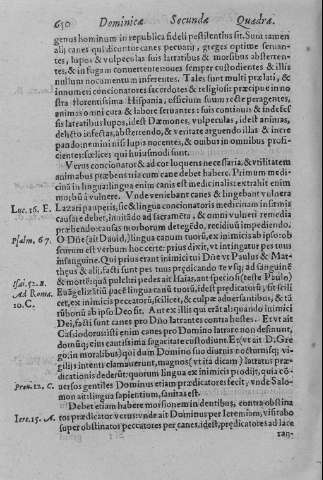 650 Dominicæ Secundæ Quadra.
genus hominum in republica fideli pestilentius sit. Sunt tamen
alij canes qui dicuntur canes pecuarij, greges optime seruan-
tes, lupos & vulpeculas suis latratibus & morsibus absterren-
tes, & in fugam conuertentes oues semper custodientes & illis
nullum nocumentum inferentes. Tales sunt multi prælati, &
innumeri concionatores sacerdotes & religiosi præcipue in no
stra florentissima Hispania, officium suum recte peragentes,
animas omni cura & labore seruantes: suis continuis & indefess
sis latratibus lupos, idest Dæmones, vulpeculas, idest animas,
delicto infestas, absterrendo, & veritate arguendo illas & incre
pando ne min nisi lupa nocentes, & ouibus in omnibus profi-
cientes: fœlices qui huiusmodi sunt.
Verus concionator & ad cor loquens necessaria, & vtilitatem
animabus præbens tria cum cane debet habere. Primum medi-
cinã in lingua: lingua enim canis est medicinalis: extrahit enim
morbũ à vulnere. Vnde veniebant canes & lingebant vulnera
Luc. 16. E. Lazari pauperis, sic & lingua concionatoris medicinam in se omnia
causare debet, inuitãdo ad sacramẽta, & omni vulneri remedia
præbendo: causas morborum detegẽdo, recidiuũ impediendo.
Psalm. 67. O Dñe (ait Dauid,) lingua canum tuorũ, ex inimicis ab ipso: ob
scurum est verbum hoc certe: prius dixit, vt intingatur pes tuus
in sanguine. Qui prius erant inimici tui Dñe vt Paulus & Mat-
theus & alij, facti sunt pes tuus prędicando te vsq; ad sanguinẽ
Isai. 52. B. & mortẽ: quã pulchri pedes ait Isaias, ant species (teste Paulo)
Ad Roma. Euãgelizãtiũ pacẽ lingua canũ tuorũ, idest prædicatorũ, sit scili
10. C. cet, ex inimicis peccatorũ, scilicet, & culpæ aduersantibus, & tã
rũ bonũ ab ipso Deo sit. Aut ex illis qui erãt aliquando inimici
Dei, facti sunt canes pro Dño latrantes contra hostes. Et vt ait
Casiodorus isti enim canes pro Domino latrare non desinunt,
domũq; eius cautissima sagacitate custodiunt. Et (vt ait D. Gre
go; in moralibus) qui dum Domino suo diurnis nocturnisq; vi-
gilijs intenti clamauerunt, magnos (vt ita dicam) latratus præ-
dicationis dederũt: quorum lingua ex inimicis prodijt, quia cõ-
Prou. 12. C. uersos gentiles Dominus etiam prædicatores fecit, vnde Salo-
mon ait lingua sapientium, sanitas est.
Debet etiam habere morsionem in dentibus, contra obstina
Iere. 15. A. tos prædicator verus: vnde ait Dominus per Ieremiam, visitabo
super obstinatos peccatores per canes, idest, prędicatores ad lace
ran-